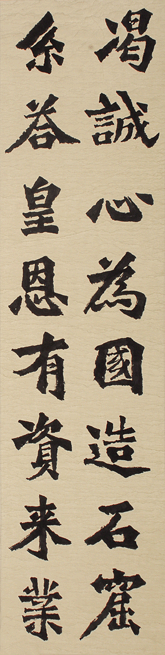 渴誠心為國造石窟
系荅皇恩有資来業